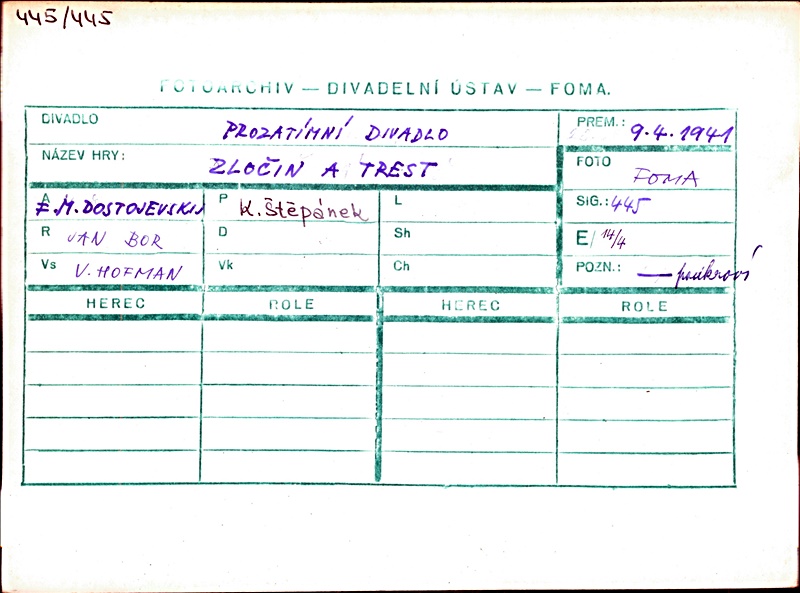 445/445
FOTOARCHIV — DIVADELNÍ ÚSTAV — FOMA.
DIVADLO PROZATÍMNÍ DIVADLO PREM.: 9.4.1941
NÁZEV HRY: ZLOČIN A TREST FOTO FOMA
A F.M.DOSTOJEVSKIJ P K.Štěpánek L SiG.: 445
R JAN BOR D Sh E/ 14/4
Vs V.HOFMAN Vk Ch POZN.: —
HEREC ROLE HEREC ROLE